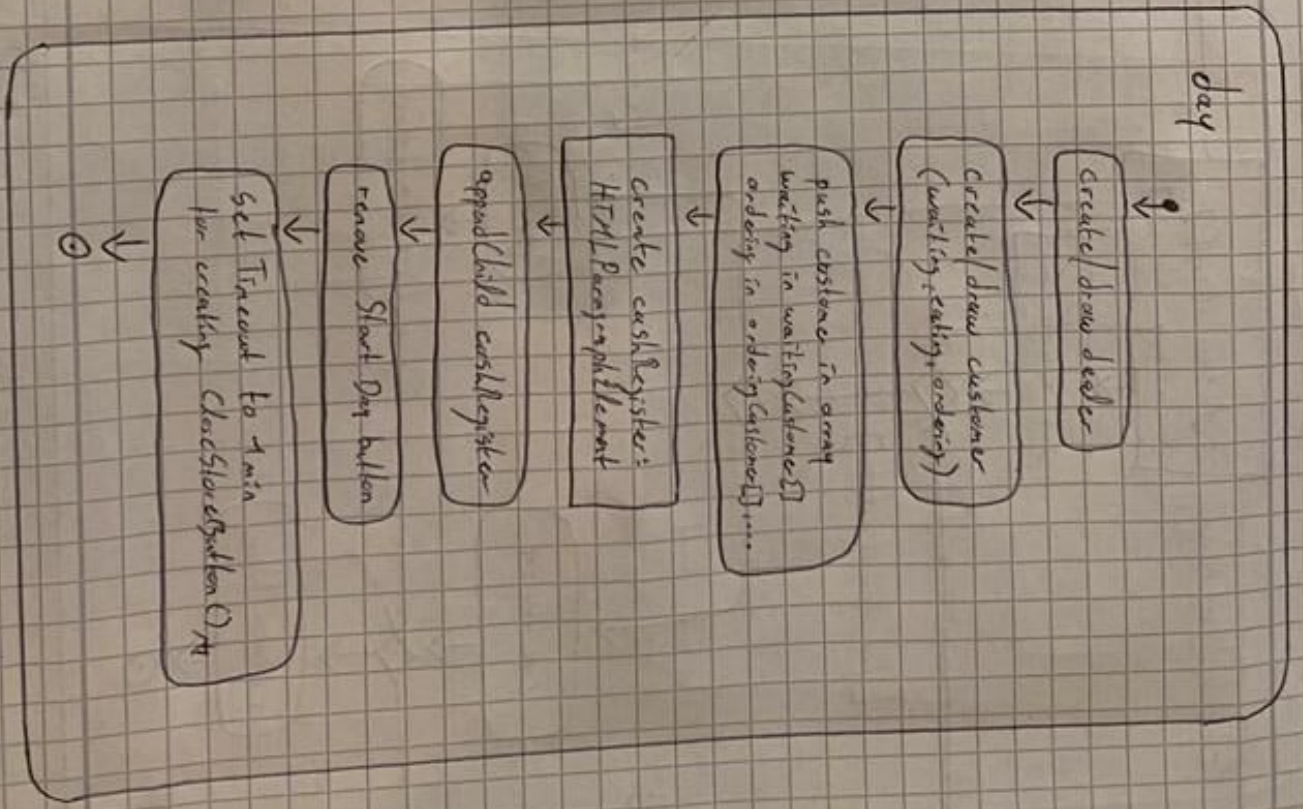 day
create/draw dealer
create/draw customer
(waiting, eating, ordering)
push costome in array
waiting in waitingCustomer[]
ordering in orderingCustomer[],...
create cashRegister:
HTMLParagraphElement
appendChild cashRegister
remove StartDay button
Set Timeout to 1 min
for creating CloseStoreButton()